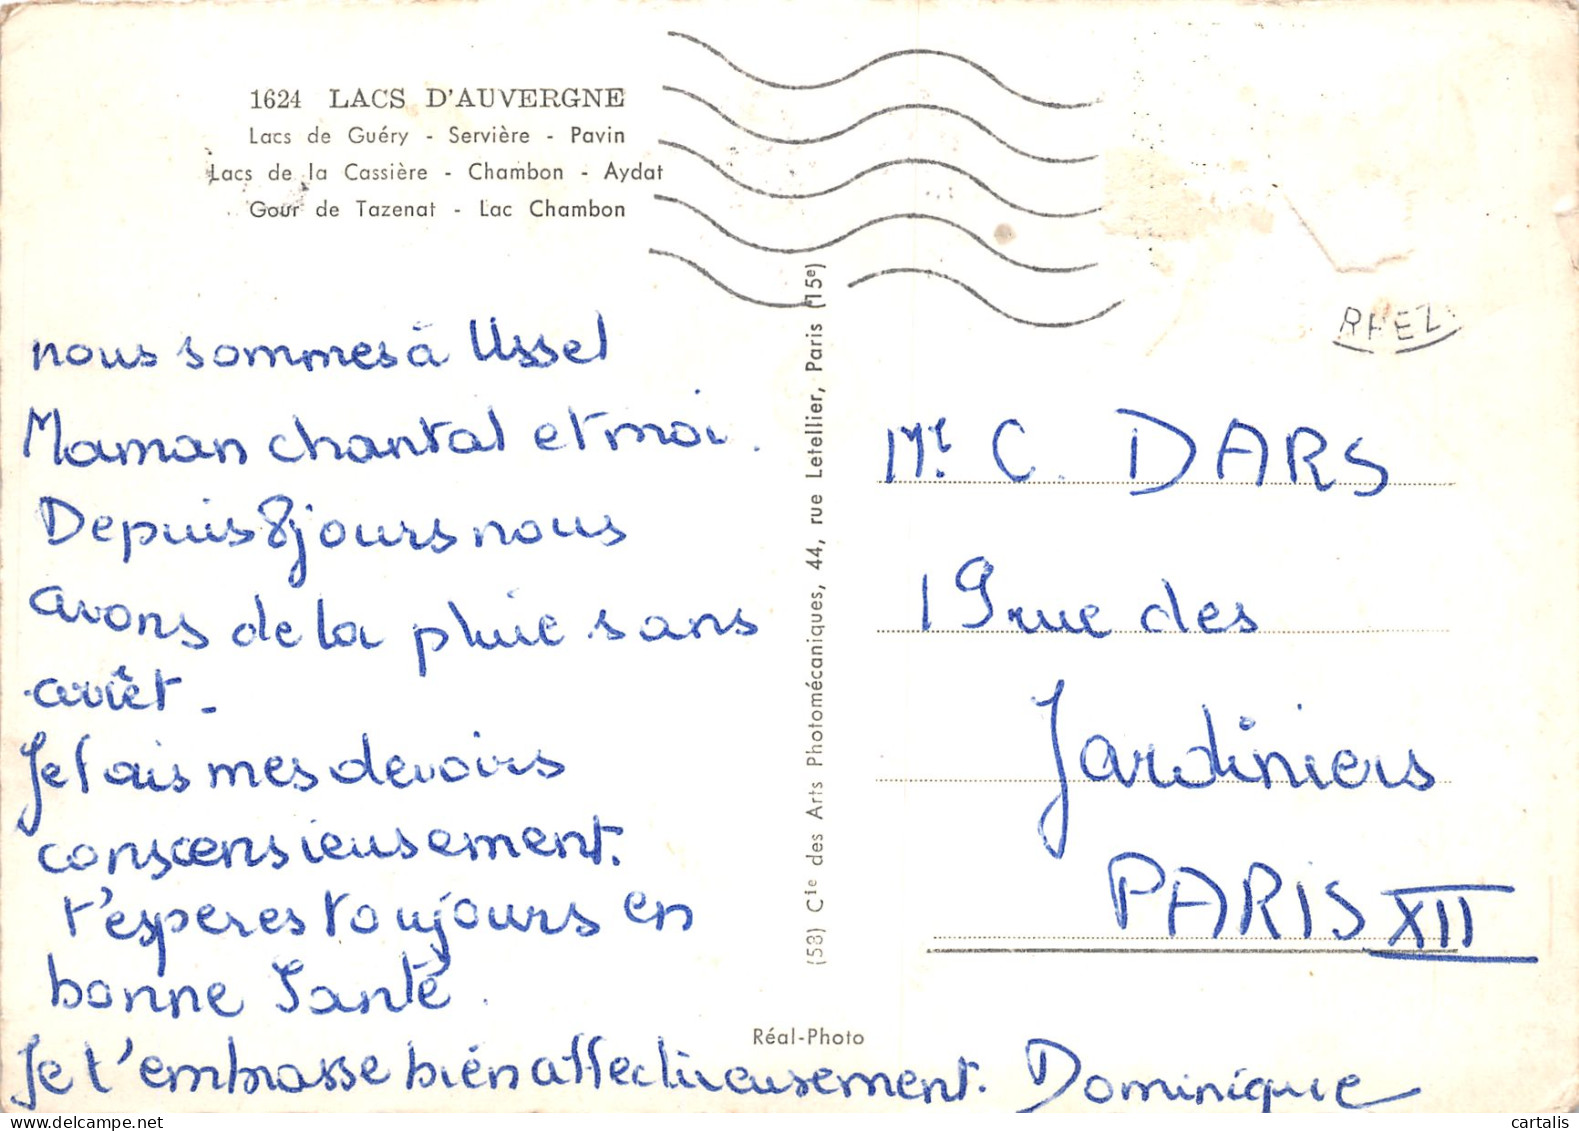 1624 LACS D'AUVERGNE
Lacs de Guéry - Servière - Pavin
Lacs de la Cassière - Chambon - Aydat
Gour de Tazenat - Lac Chambon
nous sommes à Ussel
Maman chantal et moi.
Depuis 8 jours nous
avons de la pluie sans
arrêt -
Je fais mes devoirs
conscensieusement.
t'esperes toujours en
bonne Santé.
Je t'embrasse bien affectueusement. Dominique
(53) Cie des Arts Photomécaniques, 44, rue Letellier, Paris (15e)
Réal-Photo
Mr. C. DARS
19 rue des
Jardiniers
PARIS XII
cartalis
delcampe.net